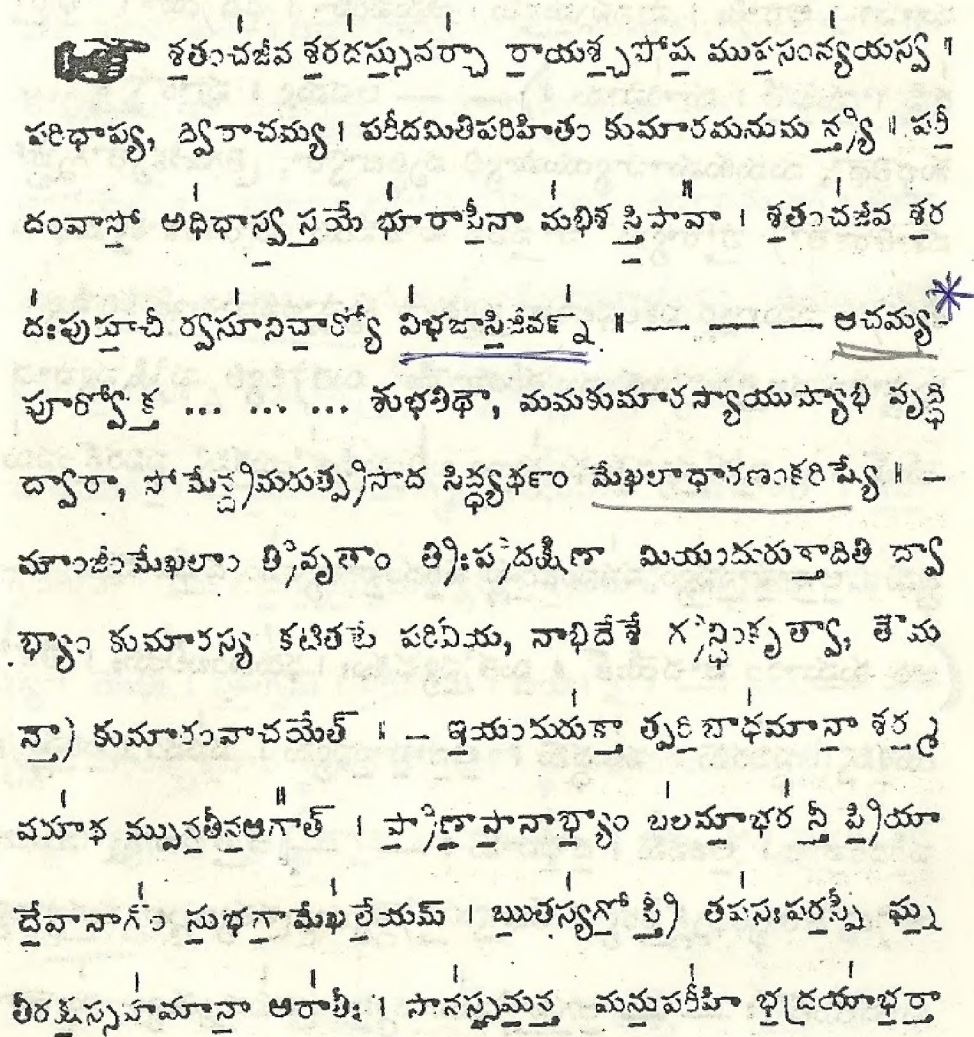 శతంచజీవ శరదస్సువర్చా రాయశ్చపోష ముపసంవ్యయస్వ ।
పరిధాప్య, ద్విరాచమ్య । పరీదమితిపరిహితం కుమారమనుమ న్త్ర్య ॥ పరీ
దంవాసో అధిధాస్వ స్తయే భూరాపీనా మభిశ స్తిపావా । శతంచజీవ శర
దఃపురూచీ ర్వసూనిచార్యో విభజాస్తిజీవన్న్ ॥ — — — ఆచమ్య
పూర్వోక్త ... ... ... శుభతిథౌ, మమకుమారస్యాయుష్యాభి వృద్ధి
ద్వారా, సోమేన్ద్రమరుత్ప్రసాద సిద్ధ్యర్థం మేఖలాధారణంకరిష్యే ॥ —
మౌంజీంమేఖలాం త్రివృతాం త్రిఃప్రదక్షిణా మియందురుక్తాదితి ద్వా
భ్యాం కుమారస్య కటితటే పరివీయ, నాభిదేశే గ్రన్థింకృత్వా, తౌమ
న్త్రా) కుమారంవాచయేత్ । — ఇయందురుక్తా త్పరిబాధమానా శర్మ
వరూథ మ్పునతీనఆగాత్ । ప్రాణాపానాభ్యాం బలమాభర న్తీ ప్రియా
దేవానాగ్ం సుభగామేఖలేయమ్ । ఋతస్యగో ప్త్రీ తపసఃపరస్పీ ఘ్న
తీరక్షస్సహమానా అరాతీః । సానస్సమన్త మనుపరీహి భద్రయాభర్తా